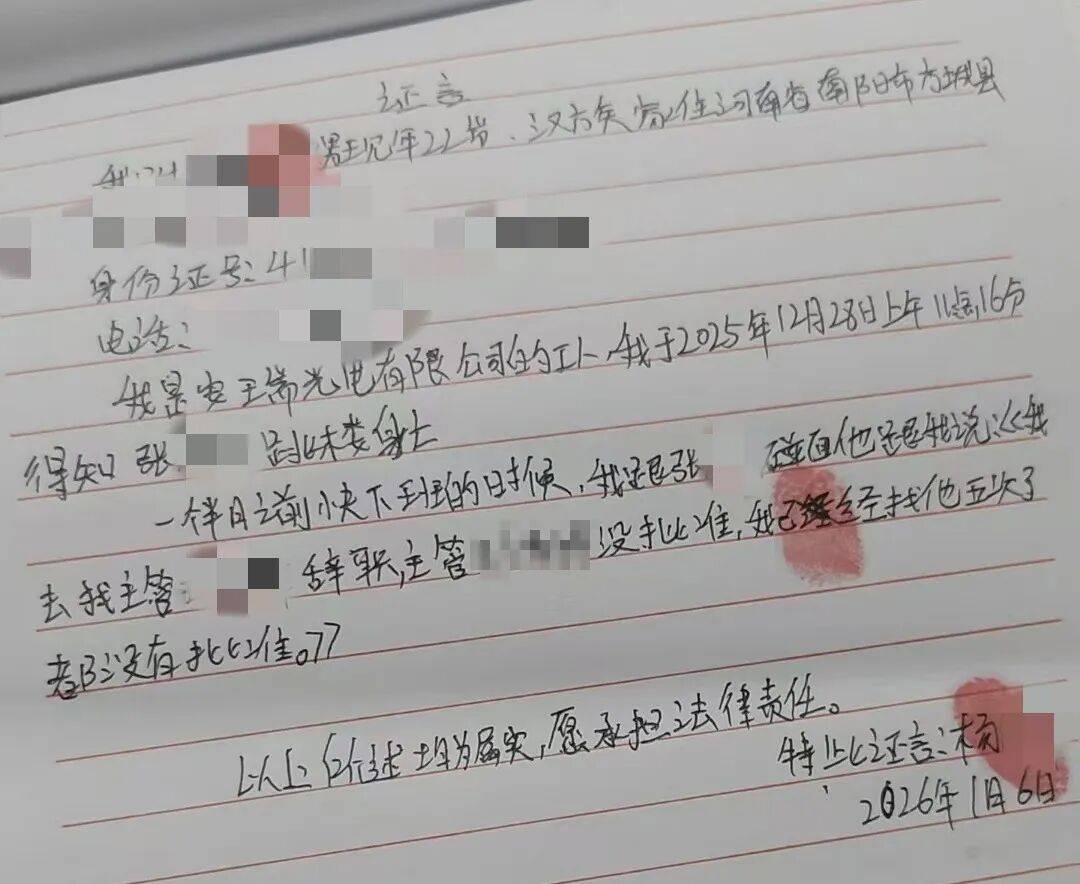 证言
我叫 男现年22岁、汉族家住河南省南阳市方城县
身份证号:41
电话:
我是安玉瑞光电有限公司的工人,我于2025年12月28日上午11点16分
得知张 跳楼身亡
一个半月之前小夫下班的时候,我跟张 碰面他跟我说:《我
去找主管 辞职,主管 没批准,我已经找他五次了
都没有批准。》
以上陈述均为属实,愿承担法律责任。
特此证言:杨
2026年1月6日